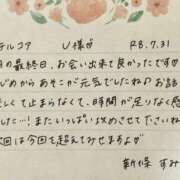 テルコア U様 R8.7.31
月の最終日、お会い出来て良かったです♡
じめからあそこが元気でしたね♪ お話
楽しくて止まらなくて、時間が足りなく感
した…!またいっぱい攻めさせて下さい
次回は今回を超えてみせますよ♡
新條 すみ